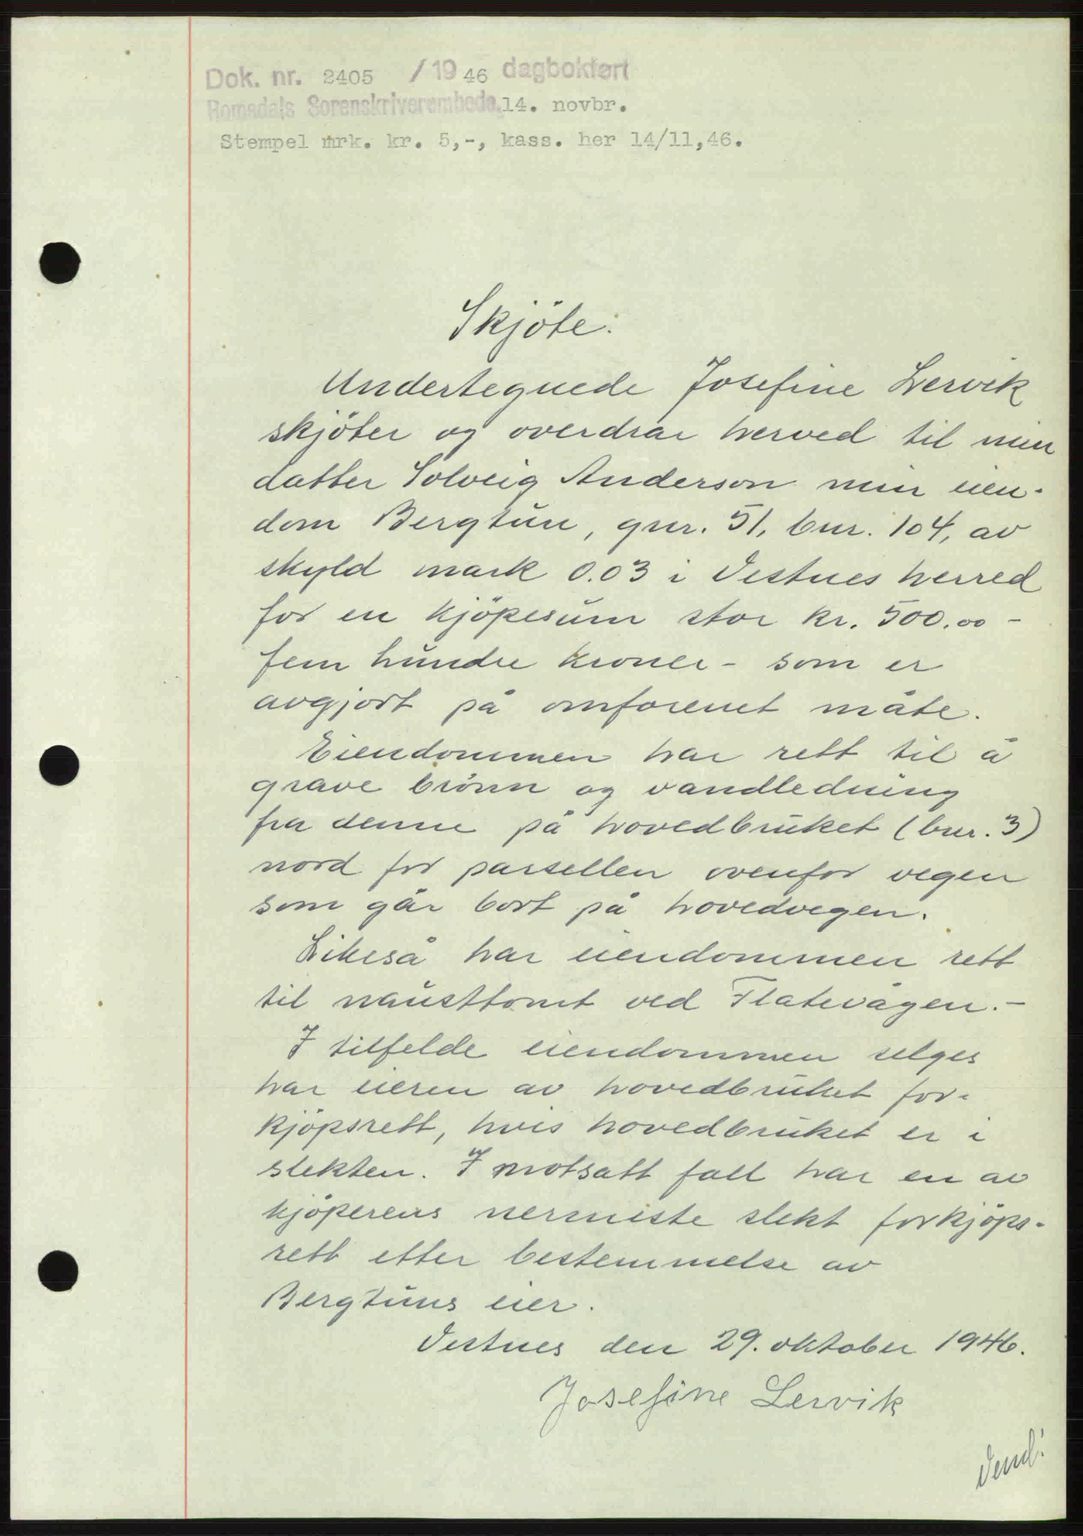 Dok. nr. 2405 / 1946 dagbokført
Romsdals Sorenskriverembede, 14. novbr.
Stempel mrk. kr. 5,-, kass. her 14/11,46.
Skjöte:
Undertegnede Josefine Lervik
skjöter og overdrar herved til min
datter Solveig Anderson min eien-
dom Bergtun, gnr. 51, bnr. 104, av
skyld mark 0.03 i Vestnes herred
for en kjöpesum stor kr. 500.00 -
fem hundre kroner - som er
avgjort på omforenet måte.
Eiendommen har rett til å
grave brönn og vandledning
fra denne på hovedbruket (bnr. 3)
nord for parsellen ovenfor vegen
som går bort på hovedvegen.
Likeså har eiendommen rett
til nausttomt ved Flatevågen. -
I tilfelde eiendommen selges
har eieren av hovedbruket for-
kjöpsrett, hvis hovedbruket er i
slekten. I motsatt fall har en av
kjöperens nermeste slekt forkjöps-
rett etter bestemmelse av
Bergtuns eier.
Vestnes den 29. oktober 1946.
Josefine Lervik
Vend!